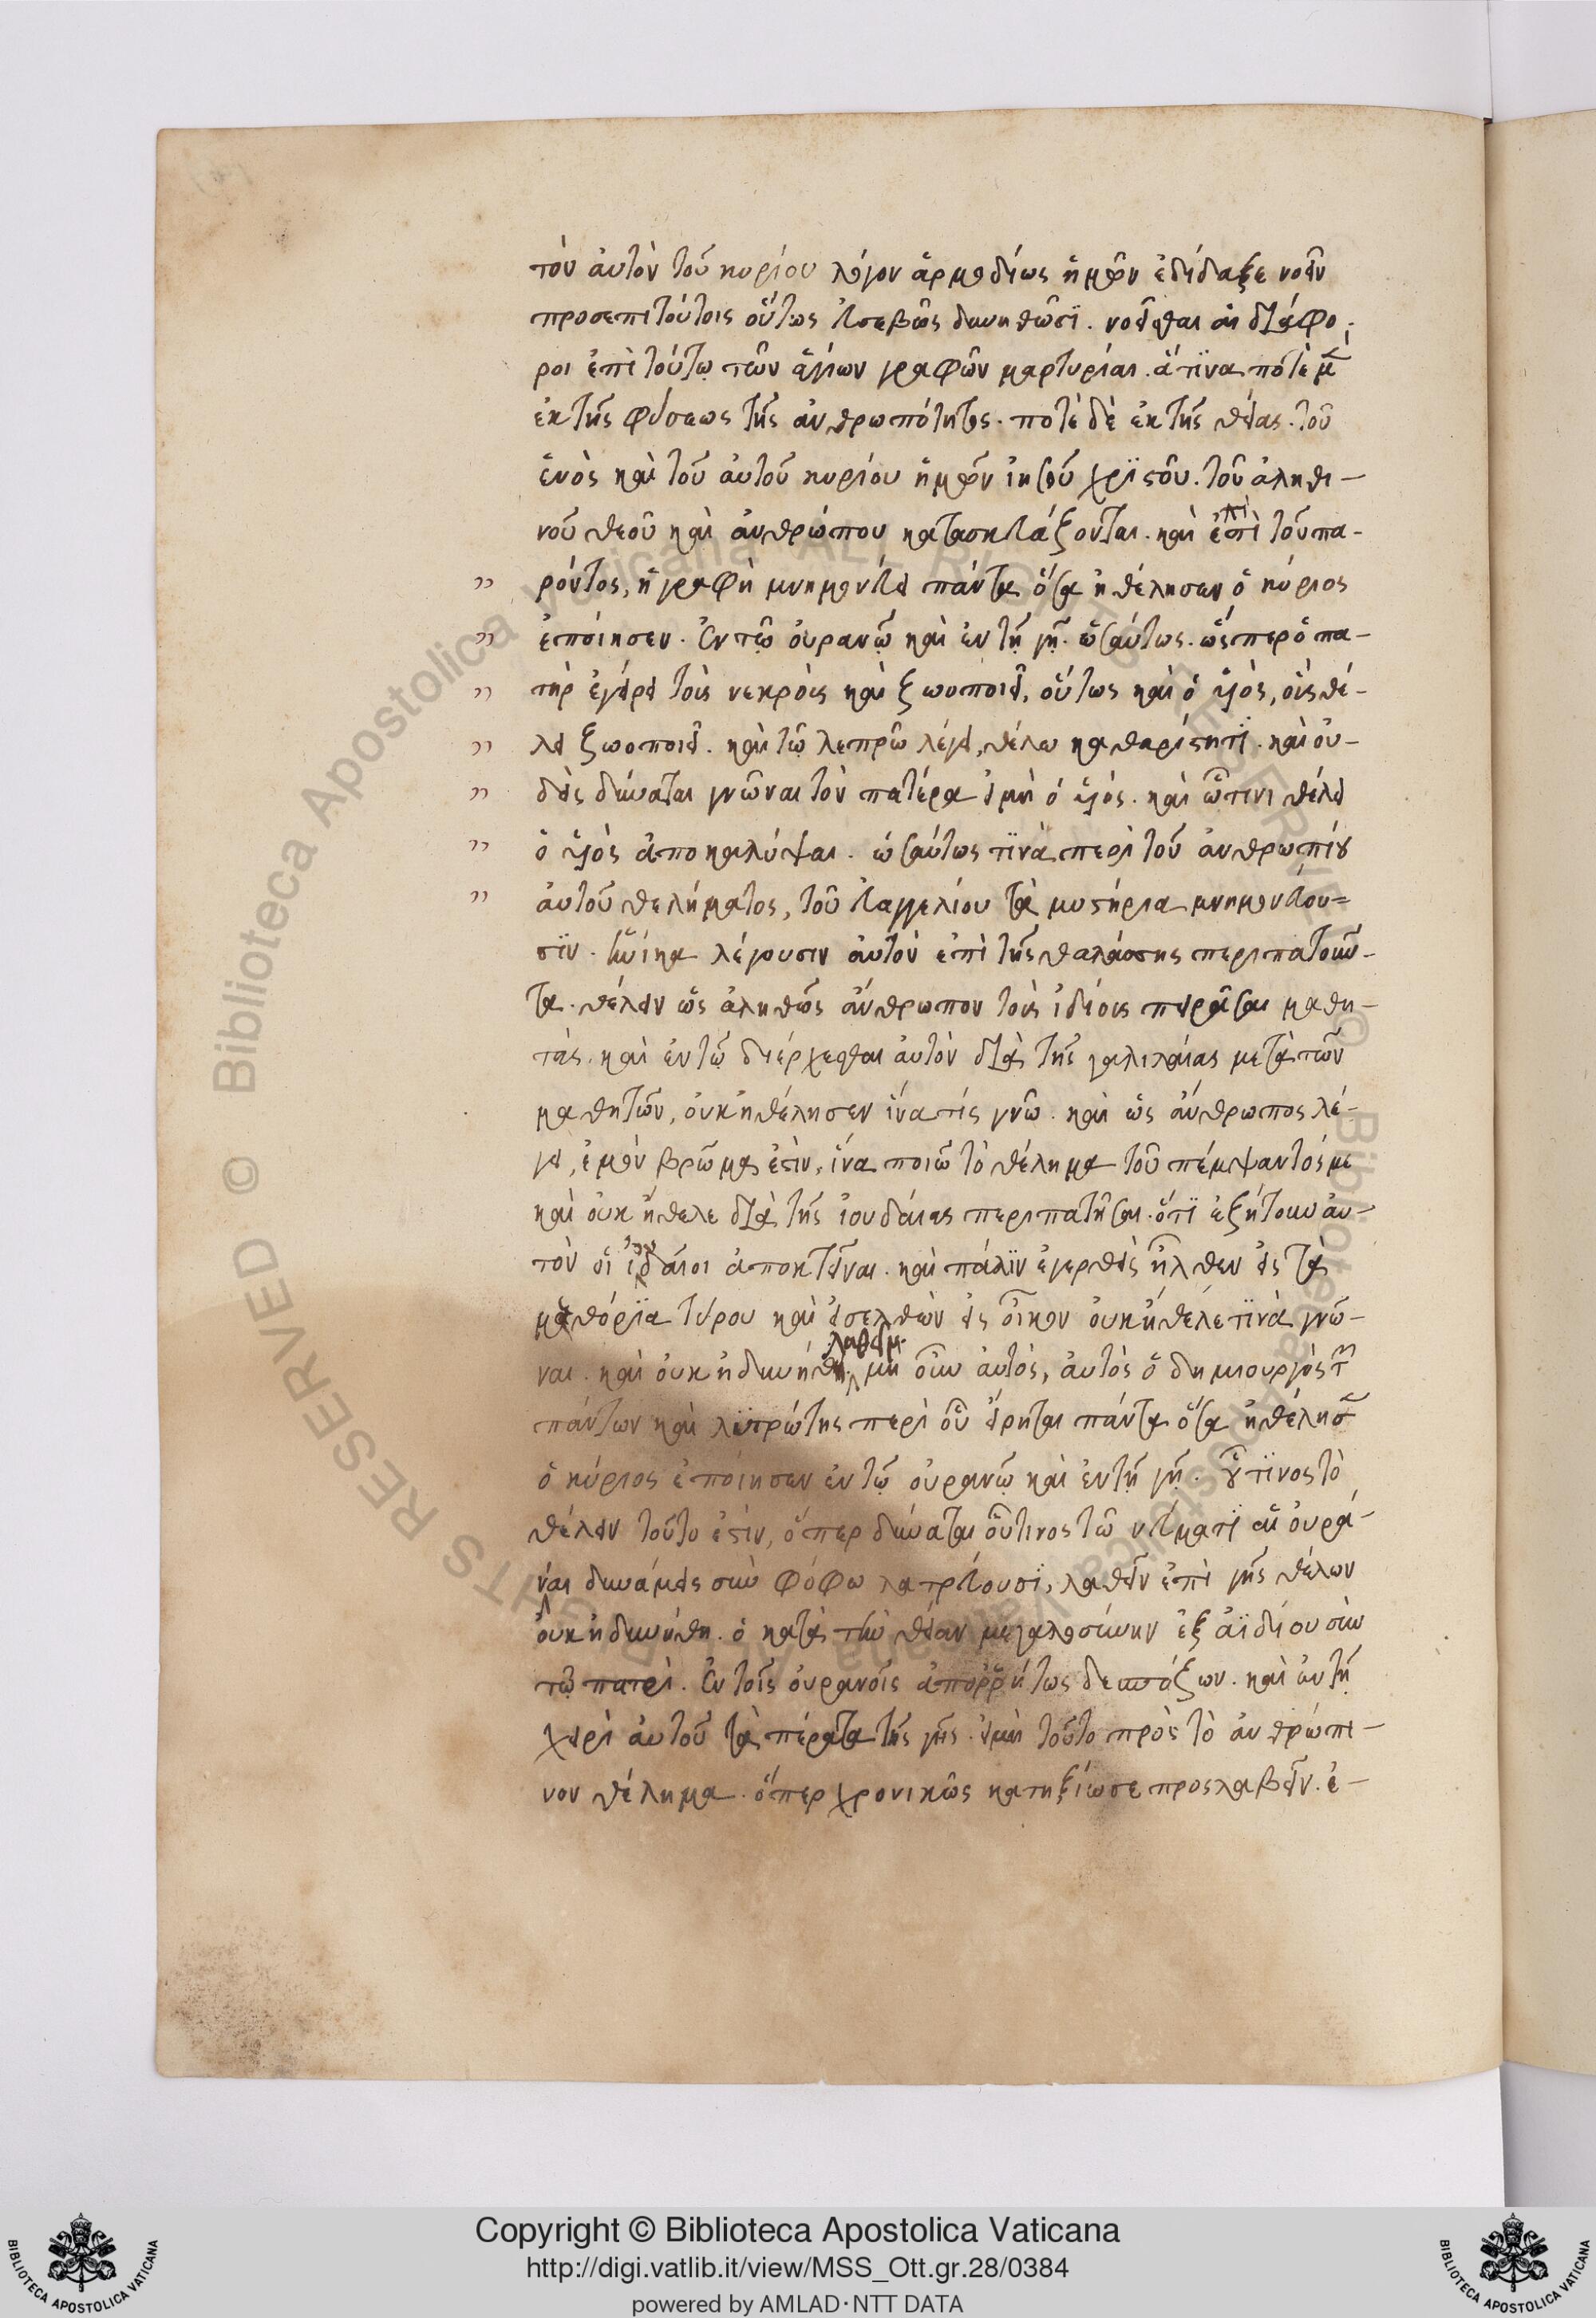 τὸν ἀυτὸν τοῦ κυρίου λόγον ἁρμοδίως ἡμῶν ἐδίδαξε νοεῖν
προσεπιτούτοις οὕτως εὐσεβῶς δυνηθῶσϊ. νοεῖσθαι αἱ διάφο-
ροι ἐπὶ τούτῳ τῶν ἁγίων γραφῶν μαρτυρίαι. ἅτϊνα ποτὲ μ̃
ἐκ τῆς φύσεως τῆς ἀνθρωπότητος. ποτὲ δὲ ἐκ τῆς θείας. τοῦ
ἑνὸς καὶ τοῦ ἀυτοῦ κυρίου ἡμῶν ἰησοῦ χρϊστοῦ. τοῦ ἀληθι-
νοῦ θεοῦ καὶ ἀνθρώπου κατασκευάζονται. καὶ ἐπὶ τοῦ πα-
ρόντος, ἡ γραφὴ μνημονεύει πάντα ὅσα ἠθέλησεν ὁ κύριος
ἐποίησεν. Ἐν τῷ ὀυρανῷ καὶ ἐν τῇ γῇ. ὡσαύτως. ὥσπερ ὁ πα-
τὴρ ἐγείρει τοὺς νεκροὺς καὶ ζωοποιεῖ, οὕτως καὶ ὁ ὑιὸς, οὓς θέ-
λει ζωοποιεῖ. καὶ τῷ λεπρῷ λέγει, θέλω καθαρίσθητϊ. καὶ ὀυ-
δεὶς δύναται γνῶναι τὸν πατέρα εἰμὴ ὁ ὑιός. καὶ ᾧτινι θέλει
ὁ ὑιὸς ἀποκαλύψαι. ὡσαύτως τϊνὰ περὶ τοῦ ἀνθρωπίνου
ἀυτοῦ θελήματος, τοῦ εὐαγγελίου τὰ μυστήρια μνημονεύου-
σϊν. ἡνίκα λέγουσιν ἀυτὸν ἐπὶ τῆς θαλάσσης περιπατοῦν-
τα. θέλειν ὡς ἀληθῶς ἄνθρωπον τοὺς ἰδίους πειρᾶσαι μαθη-
τάς. καὶ ἐν τῷ διέρχεσθαι ἀυτὸν διὰ τῆς γαλιλαίας μετὰ τῶν
μαθητῶν, ὀυκ ἠθέλησεν ἵνα τίς γνῷ. καὶ ὡς ἄνθρωπος λέ-
γει, ἐμὸν βρῶμα ἐστὶν, ἵνα ποιῶ τὸ θέλημα τοῦ πέμψαντός με
καὶ ὀυκ ἤθελε διὰ τῆς ἰουδαίας περιπατῆσαι. ὅτϊ ἐζήτουν ἀυ-
τὸν οἱ ἰουδαῖοι ἀποκτεῖναι. καὶ πάλϊν ἐγερθεὶς ἦλθεν εἰς τὰ
μεθόρϊα τύρου καὶ εἰσελθὼν εἰς οἶκον ὀυκ ἤθελε τϊνὰ γνῶ-
ναι. καὶ ὀυκ ἠδυνήθη λαθεῖν. μὴ οὖν ἀυτὸς, ἀυτὸς ὁ δημιουργὸς τ̃
πάντων καὶ λυτρώτης περὶ οὗ εἴρηται πάντα ὅσα ἠθέλησ̃
ὁ κύριος ἐποίησεν ἐν τῷ ὀυρανῷ καὶ ἐν τῇ γῇ. οὗτϊνος τὸ
θέλειν τοῦτο ἐστὶν, ὅπερ δύναται οὗτινος τῷ νεύματϊ αἱ ὀυρά-
νιαι δυνάμεις σὺν φόβω λατρεύουσϊ, λαθεῖν ἐπὶ γῆς θέλων
ὀυκ ἠδυνήθη. ὁ κατὰ τὴν θείαν μεγαλοσύνην ἐξ ἀϊδίου σὺν
τῷ πατρὶ. Ἐν τοῖς ὀυρανοῖς ἀπορρήτως δεσπόζων. καὶ ἐν τῇ
χειρὶ ἀυτοῦ τὰ πέρατα τῆς γῆς. εἰμὴ τοῦτο πρὸς τὸ ἀνθρώπι-
νον θέλημα. ὅπερ χρονικῶς κατηξίωσε προσλαβεῖν. ἐ-
Copyright © Biblioteca Apostolica Vaticana
http://digi.vatlib.it/view/MSS_Ott.gr.28/0384
powered by AMLAD·NTT DATA